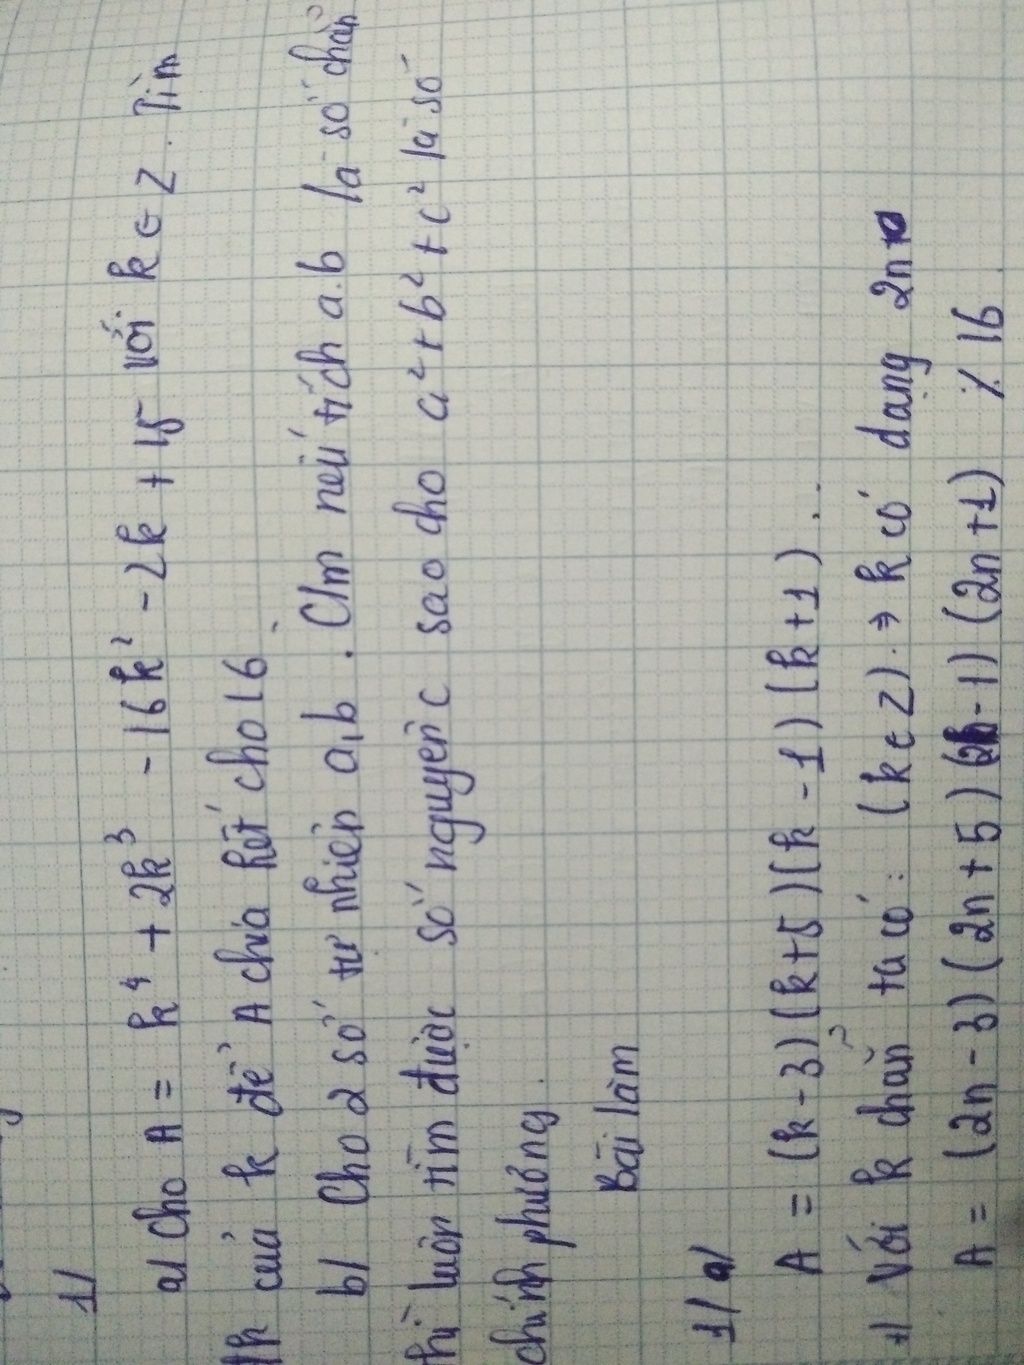 1/
a/ Cho A = k⁴ + 2k³ - 16k² - 2k + 15 với k ∈ Z. Tìm
đk của k để A chia hết cho 16
b/ Cho 2 số tự nhiên a,b. C/m nếu tích a.b là số chẵn
thì luôn tìm được số nguyên c sao cho a² + b² + c² là số
chính phương.
Bài làm
1/ a/
A = (k - 3)(k+5)(k - 1)(k+1)..
+/ Với k chẵn ta có: (k ∈ Z). ⇒ k có dạng 2n
A = (2n - 3)(2n + 5)(2n - 1)(2n + 1) ⋮̸ 16